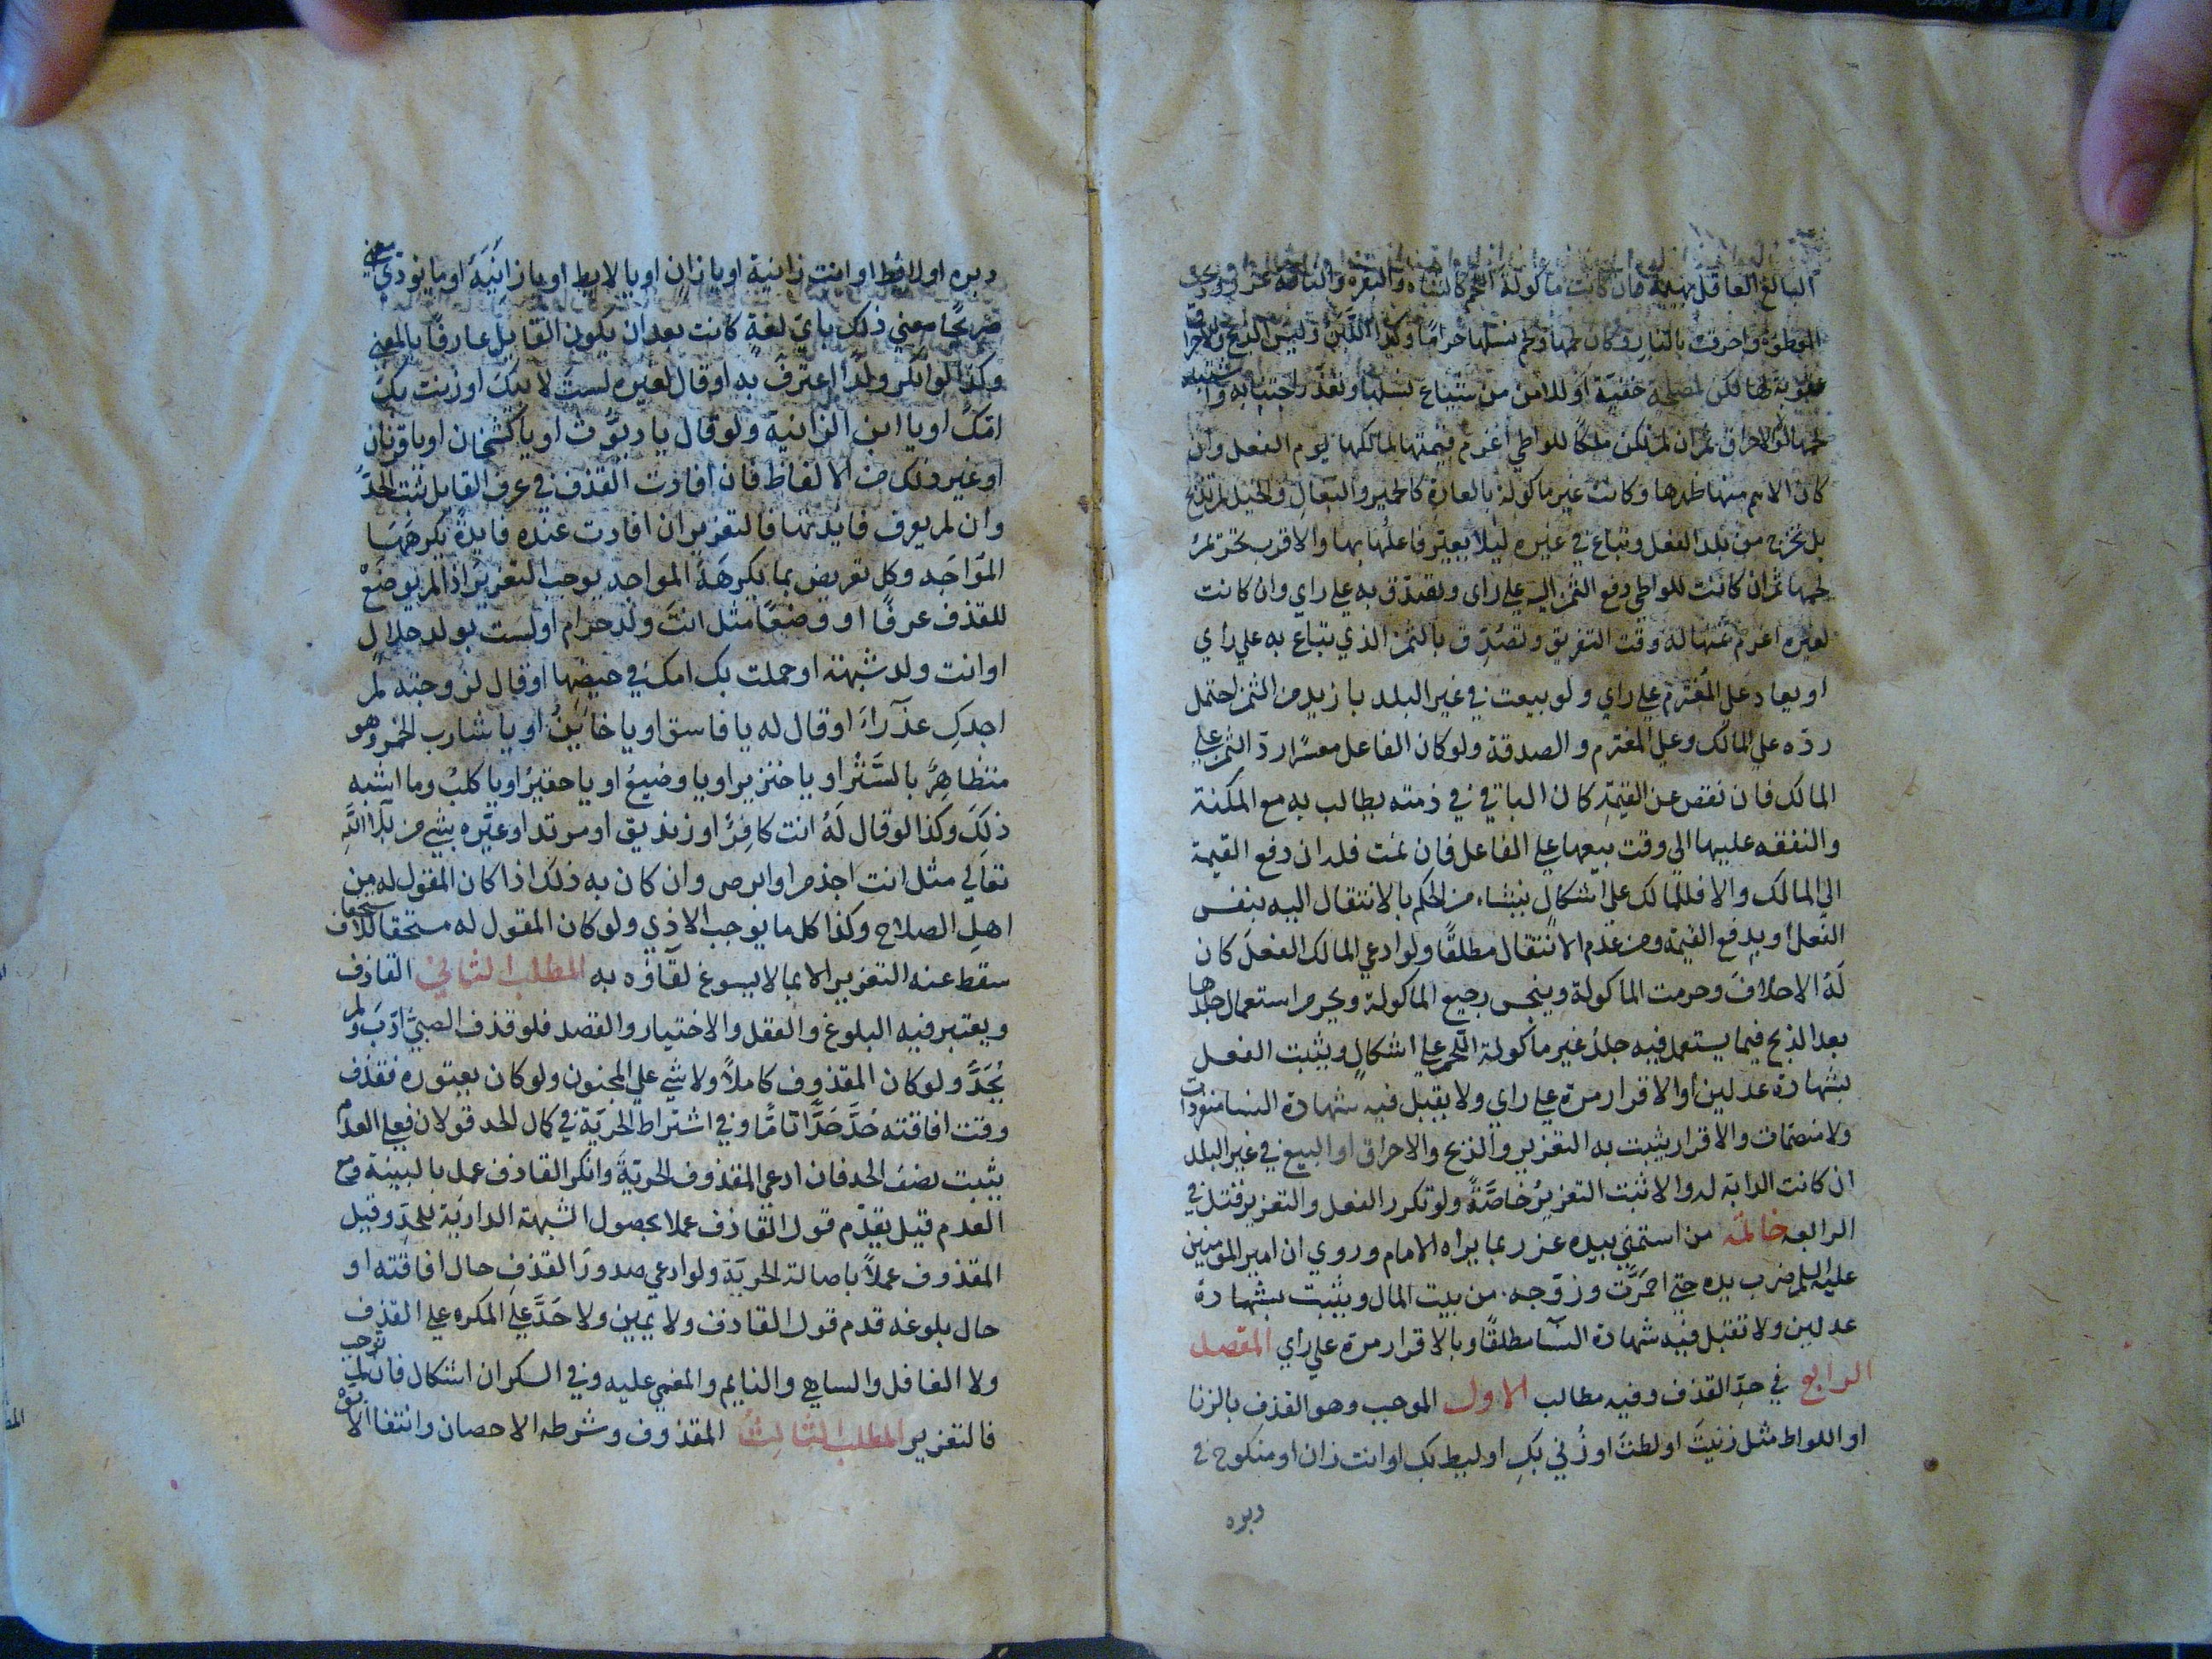 البالغ العاقل بهيمة فان كانت مأكولة اللحم كالشاة والبقرة والناقة عزر وذبحت
الموطوءة واحرقت بالنار وكان لحمها ولحم نسلها حراما وكذا اللبن وليس الذبح والاحراق
عقوبة لها لكن لمصلحة خفية او للامن من شياع نسلها وتعذر اجتنابه
لحمها لولا الاحراق ثم ان لم تكن ملكا للواطي اغرم قيمتها لمالكها يوم الفعل وان
كان الاهم منها ظهرها وكانت غير ماكولة بالعادة كالحمير والبغال والخيل لم تذبح
بل تخرج من بلد الفعل وتباع في غيره ليلا يعير فاعلها بها والاقرب تحريم
لحمها ثم ان كانت للواطي دفع الثمن اليه على راي وتصدق به على راي وان كانت
لغيره اغرم ثمنها له وقت التفريق وتصدق بالثمن الذي تباع به علي رأي
او يعاد على المغترم على راي ولو بيعت في غير البلد بازيد من الثمن احتمل
ردّه علي المالك وعلي المغترم والصدقة ولو كان الفاعل معسرًا ردّ الثمن علي
المالك فان نقص عن القيمة كان الباقي في ذمته يطالب به مع المكنة
والنفقه عليها الى وقت بيعها على الفاعل فان نمت فله ان دفع القيمة
الي المالك والا فللمالك على اشكال ينشاء من الحكم بالانتقال اليه بنفس
الفعل او بدفع القيمة ومن عدم الانتقال مطلقًا ولو ادعي المالك الفعل كان
له الاحلاف وحرمت الماكولة وينجس رجيع الماكولة ويحرم استعمال جلدها
بعد الذبح فيما يستعمل فيه جلد غير ماكولة اللحم على اشكال ويثبت الفعل
بشهادة عدلين أو الاقرار مرة علي راي ولا يقبل فيه شهادة النسا منفردات
ولا منضمات والاقرار يثبت به التعزير والذبح والاحراق او البيع في غير البلد
ان كانت الدابة له والا ثبت التعزير خاصة ولو تكرر الفعل والتعزير قتل في
الرابعة خاتمة من استمني بيده عزر بما يراه الامام وروي ان امير المومنين
عليه السلم ضرب يده حتي احمرّت وزوّجه من بيت المال ويثبت بشهادة
عدلين ولا تقبل فيه شهادة النسآ مطلقًا وبالاقرار مرة علي رأي المقصد
الرابع في حدّ القذف وفيه مطالب الاول الموجب وهو القذف بالزنا
او اللواط مثل زنيت او لطت او زُني بك او ليط بك او انت زان او منكوح في
دبره
دبره او لائط او انت زانية او يا زان او يا لايط او يا زانية او ما يودّي معني
صريحًا معني ذلك باي لغة كانت بعد ان يكون القايل عارفًا بالمعني
وكذا لو انكر ولدًا اعترف به او قال لغيره لست لابيك او زنت بك
امّك او يا ابن الزانية ولو قال يا ديّوث او يا كشخان او يا قرنان
او غير ذلك من الالفاظ فان افادت القذف في عرف القايل ثبت الحدّ
وان لم يعرف فايدتها فالتعزير ان افادت عنده فايدة يكرهها
المواجه وكل تعريض بما يكرهه المواجه يوجب التعزير اذا لم يوضع
للقذف عرفًا او وضعًا مثل انت ولد حرام او لست بولد حلال
او انت ولد شبهة او حملت بك امك في حيضها او قال لزوجته لم
اجدكِ عذراء او قال له يا فاسق او يا خاين او يا شارب الخمر وهو
متظاهر بالستر او يا خنزير او يا وضيع او يا حقير او يا كلب وما اشبه
ذلك وكذا لو قال له انت كافر او زنديق او مرتد او عيّره بشي من بلاء الله
تعالي مثل انت اجذم او ابرص وان كان به ذلك اذا كان المقول له من
اهل الصلاح وكذا كل ما يوجب الاذي ولو كان المقول له مستحقا للاستخفاف
سقط عنه التعزير الا بما لا يسوغ لقاؤه به المطلب الثاني القاذف
ويعتبر فيه البلوغ والعقل والاختيار والقصد فلو قذف الصبيّ ادّب ولم
يُحدّ ولو كان المقذوف كاملاً ولا شي علي المجنون ولو كان يعتوره فقذف
وقت افاقته حُدّ حدًّا تامًّا وفي اشتراط الحريّة في كمال الحد قولان فعلى العدم
يثبت نصف الحد فان ادعي المقذوف الحريّة وانكر القاذف عمل بالبينة ومع
العدم قيل يقدّم قول القاذف عملا بحصول الشبهة الداريَة للحدّ وقيل
المقذوف عملاً باصالة الحريّة ولو ادعي صدور القذف حال افاقته او
حال بلوغه قدم قول القاذف ولا يمين ولا حدّ على المكره علي القذف
ولا الغافل والساهي والنايم والمغمي عليه وفي السكران اشكال فان لم نوجبه
فالتعزير المطلب الثالث المقذوف وشرطه الاحصان وانتفاء الابوة